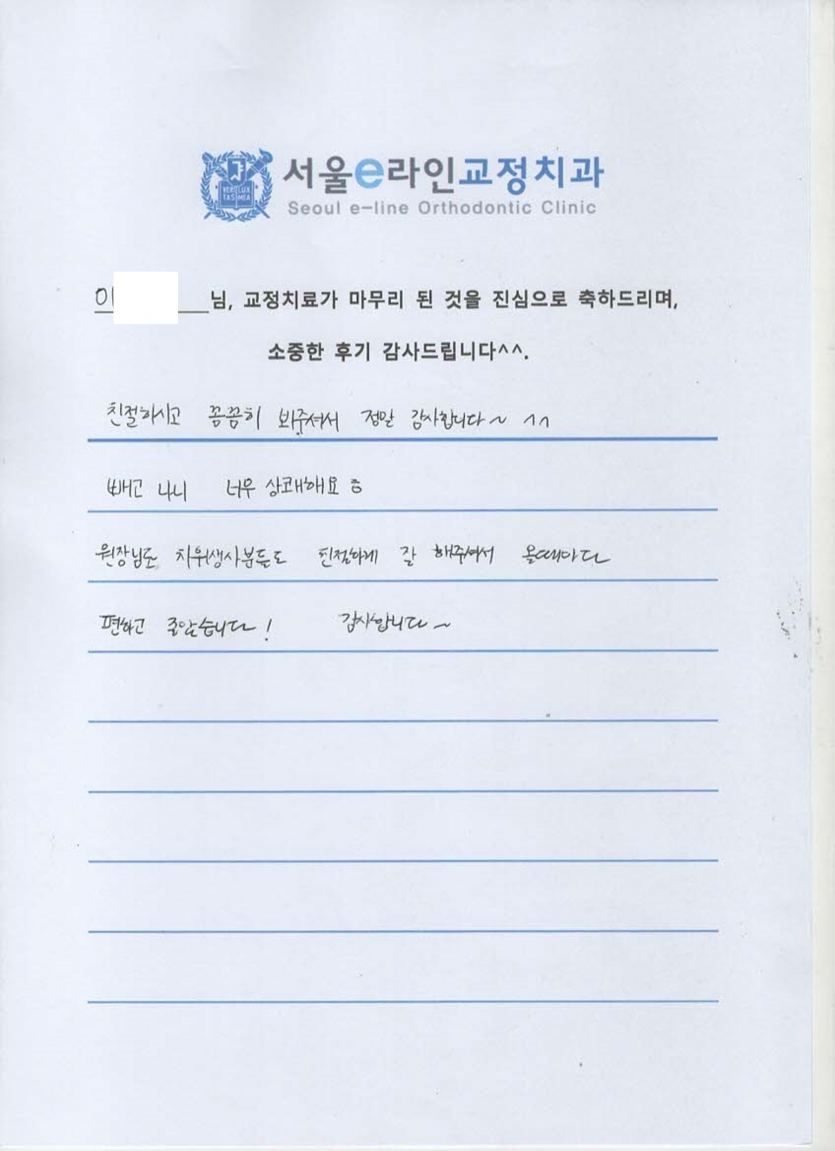 VERI LUX
TAS MEA
서울e라인교정치과
Seoul e-line Orthodontic Clinic
이 님, 교정치료가 마무리 된 것을 진심으로 축하드리며,
소중한 후기 감사드립니다^^.
친절하시고 꼼꼼히 봐주셔서 정말 감사합니다~ ^^
빼고 나니 너무 상쾌해요
원장님도 치위생사분들도 친절하게 잘 해주셔서 올때마다
편하고 좋았습니다! 감사합니다~